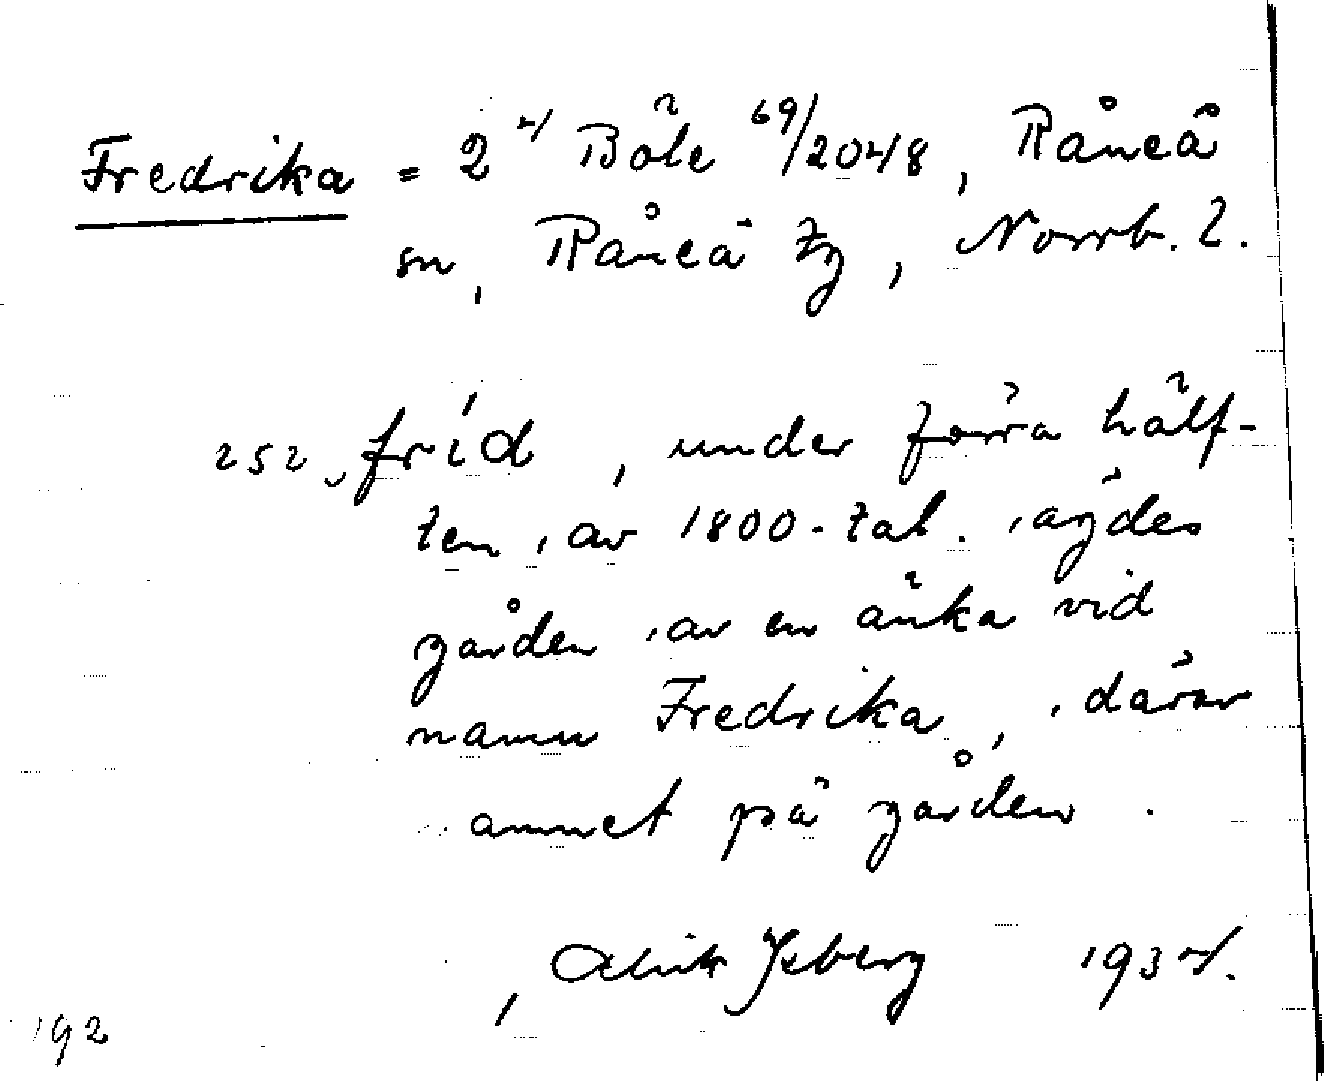 Fredrika = 2 Böle 69/2048, Råneå
sn, Råneå tg, Norrb. l.
252 fríd, under förra hälf-
ten av 1800-tal. ägdes
gården av en änka vid
namn Fredrika, därav
amnet på gården.
Alrik Isberg 193
192